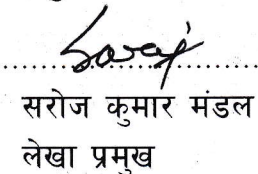 सरोज कुमार मंडल
लेखा प्रमुख